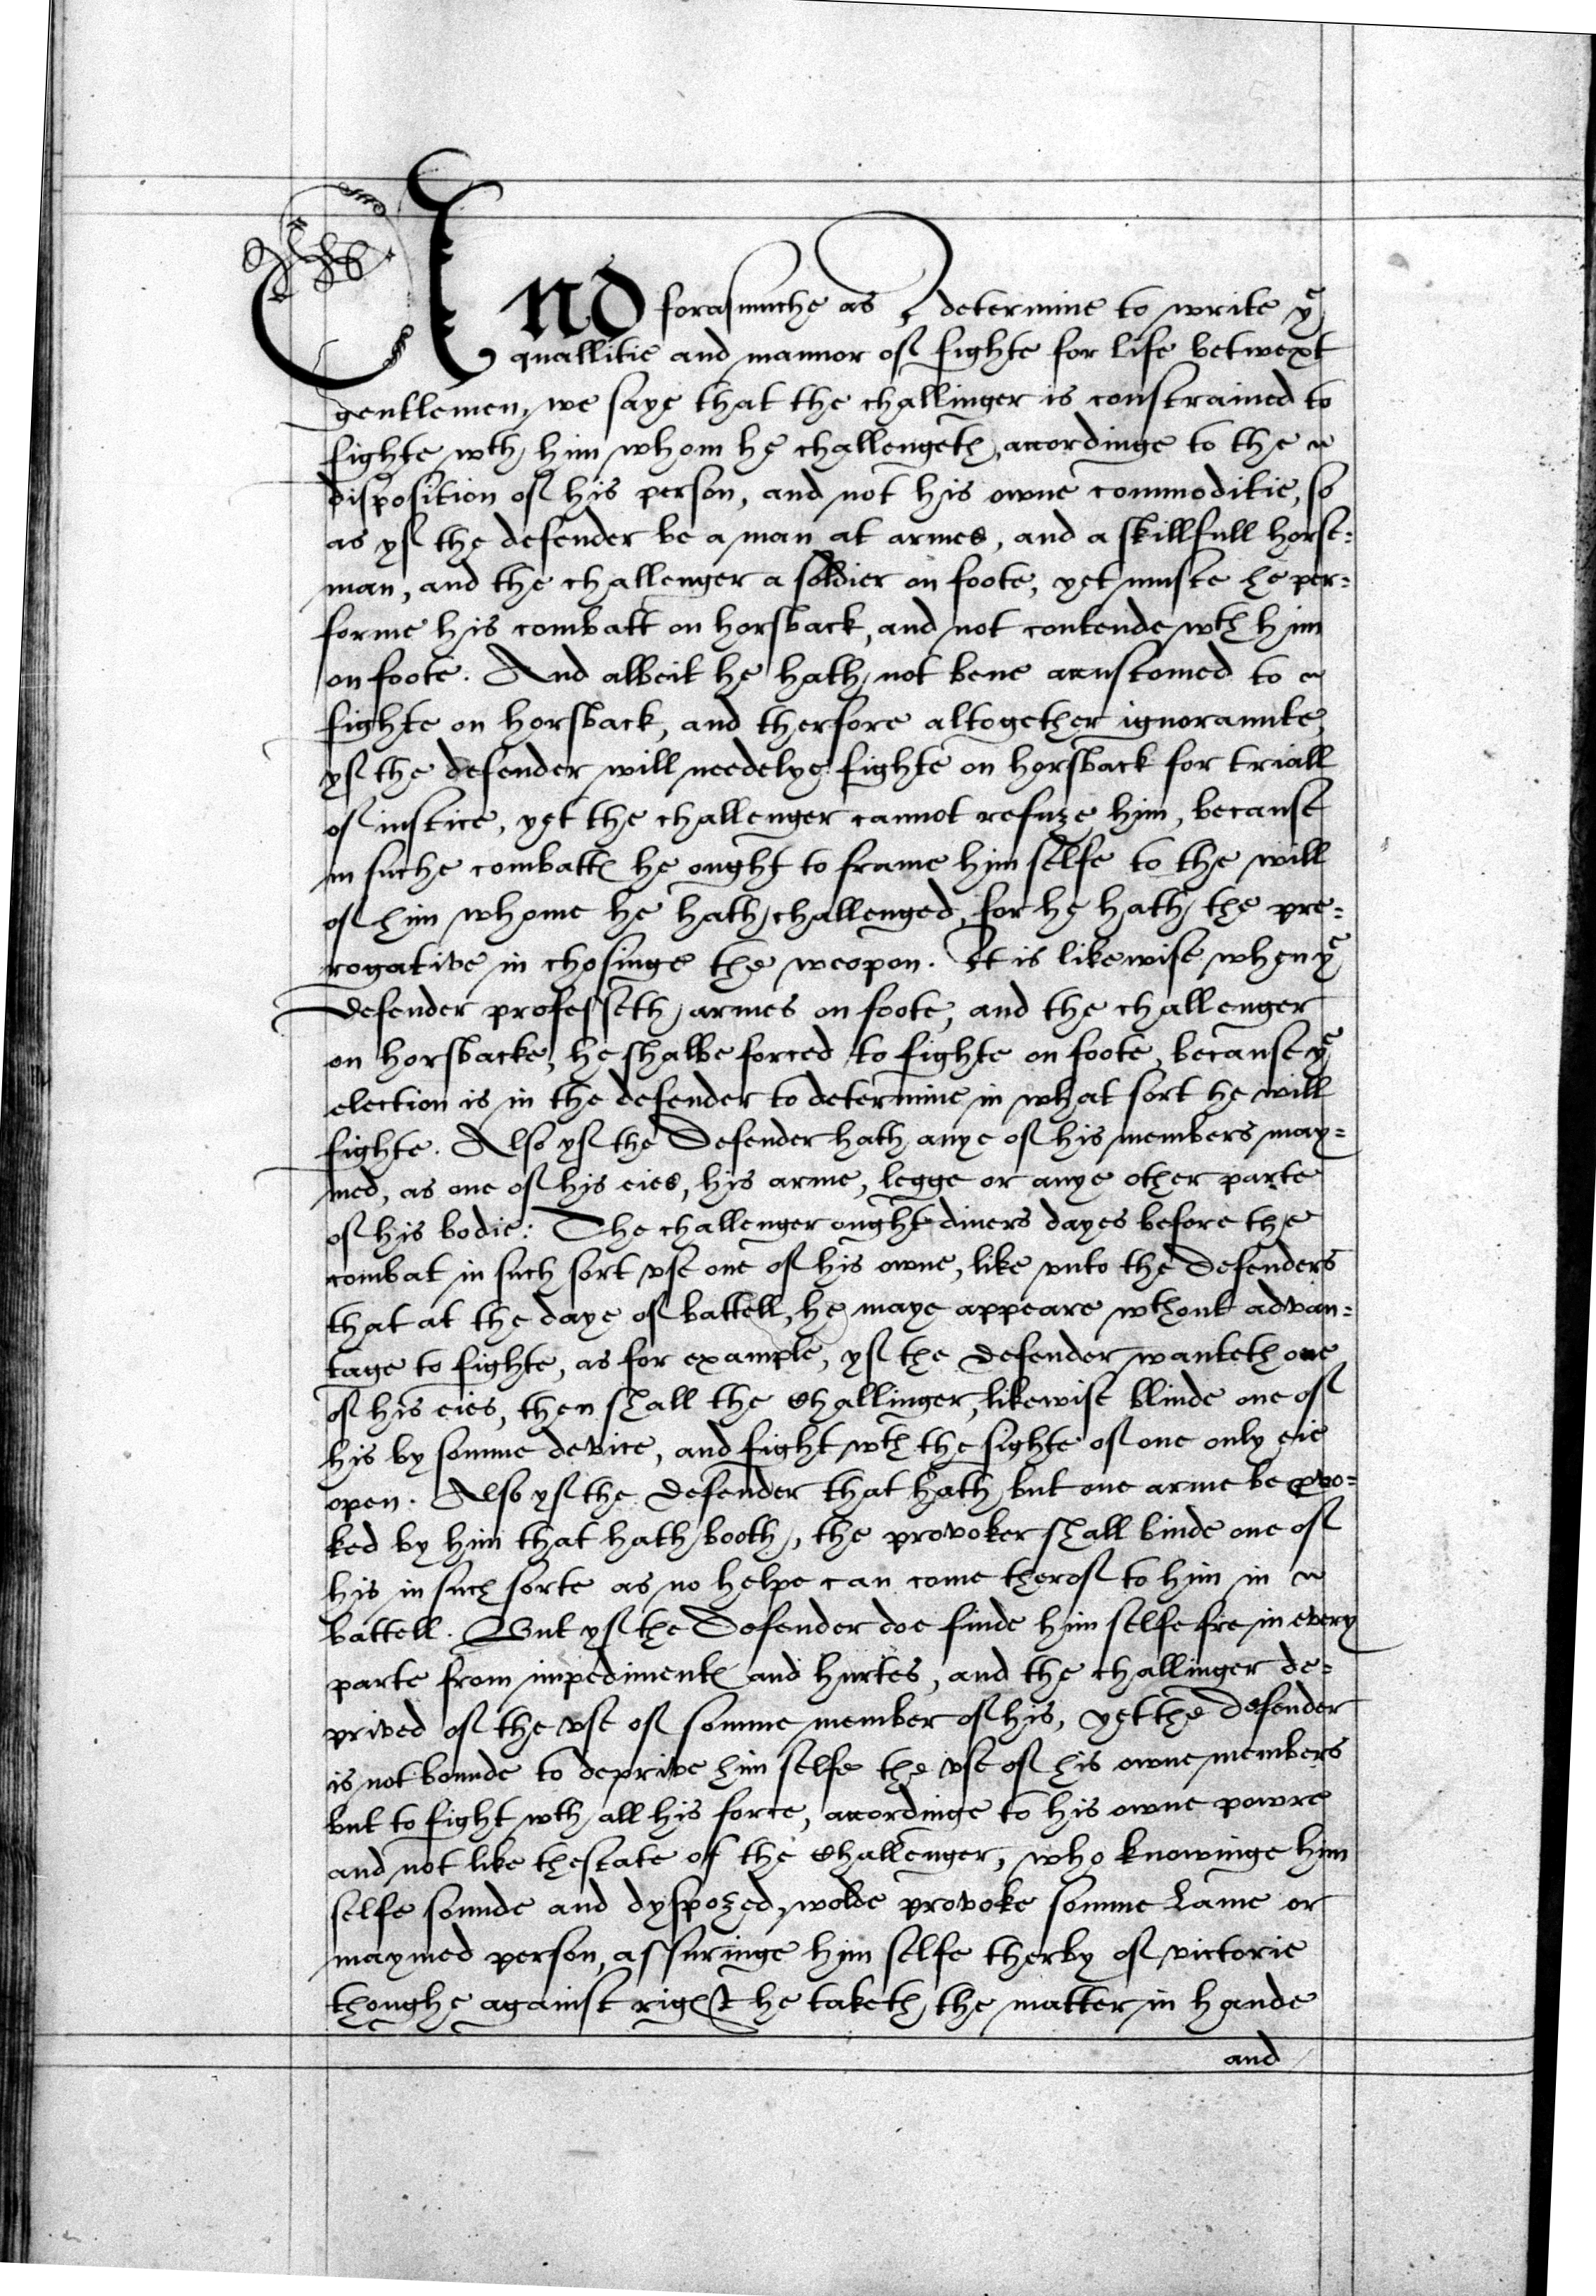 And forasmuche as I determine to write yᵉ
quallitie and mannor of fighte for life betwext
gentlemen, we saye that the challinger is constrained to
fighte wth him whom he challengeth, accordinge to the
disposition of his person, and not his owne commoditie, so
as yf the defender be a man at armes, and a skillfull horse=
man, and the challenger a soldier on foote, yet muste he per=
forme his combatt on horsback, and not contende wth him
on foote. And albeit he hath not bene accustomed to
fighte on horsback, and therfore altogether ignorannte,
yf the defender will needelye fighte on horsback for triall
of iustice, yet the challenger cannot refuze him, because
in suche combattes he ought to frame him selfe to the will
of him whome he hath challenged, for he hath the pre=
rogative in chosinge the weopon. It is likewise when yᵉ
defender professeth armes on foote, and the challenger
on horsbacke, he shalbe forced to fighte on foote, because yᵉ
election is in the defender to determine in what sort he will
fighte. Also yf the Defender hath anye of his members may=
med, as one of his eies, his arme, legge or anye other parte
of his bodie: The challenger ought diuers dayes before the
combat in such sort vse one of his owne, like vnto the Defenders
that at the daye of battell, he maye appeare wthout advan=
tage to fighte, as for example, yf the Defender wanteth one
of his eies, then shall the Challinger, likewise blinde one of
his by somme device, and fight wth the sighte of one only eie
open. Also yf the Defender that hath but one arme be pvo=
ked by him that hath booth, the provoker shall binde one of
his in such sorte as no helpe can come therof to him in
battell. But yf the Defender doe finde him selfe fre in every
parte from impedimentes and hurtes, and the challinger de=
prived of the vse of somme member of his, yet the defender
is not bounde to deprive him selfe the vse of his owne members
but to fight wth all his force, accordinge to his owne powre
and not like thestate of the Challenger, who knowinge him
selfe sounde and dyspozed, wolde provoke somme Lame or
maymed person, assuringe him selfe therby of victorie
thoughe against right he taketh the matter in hande
and